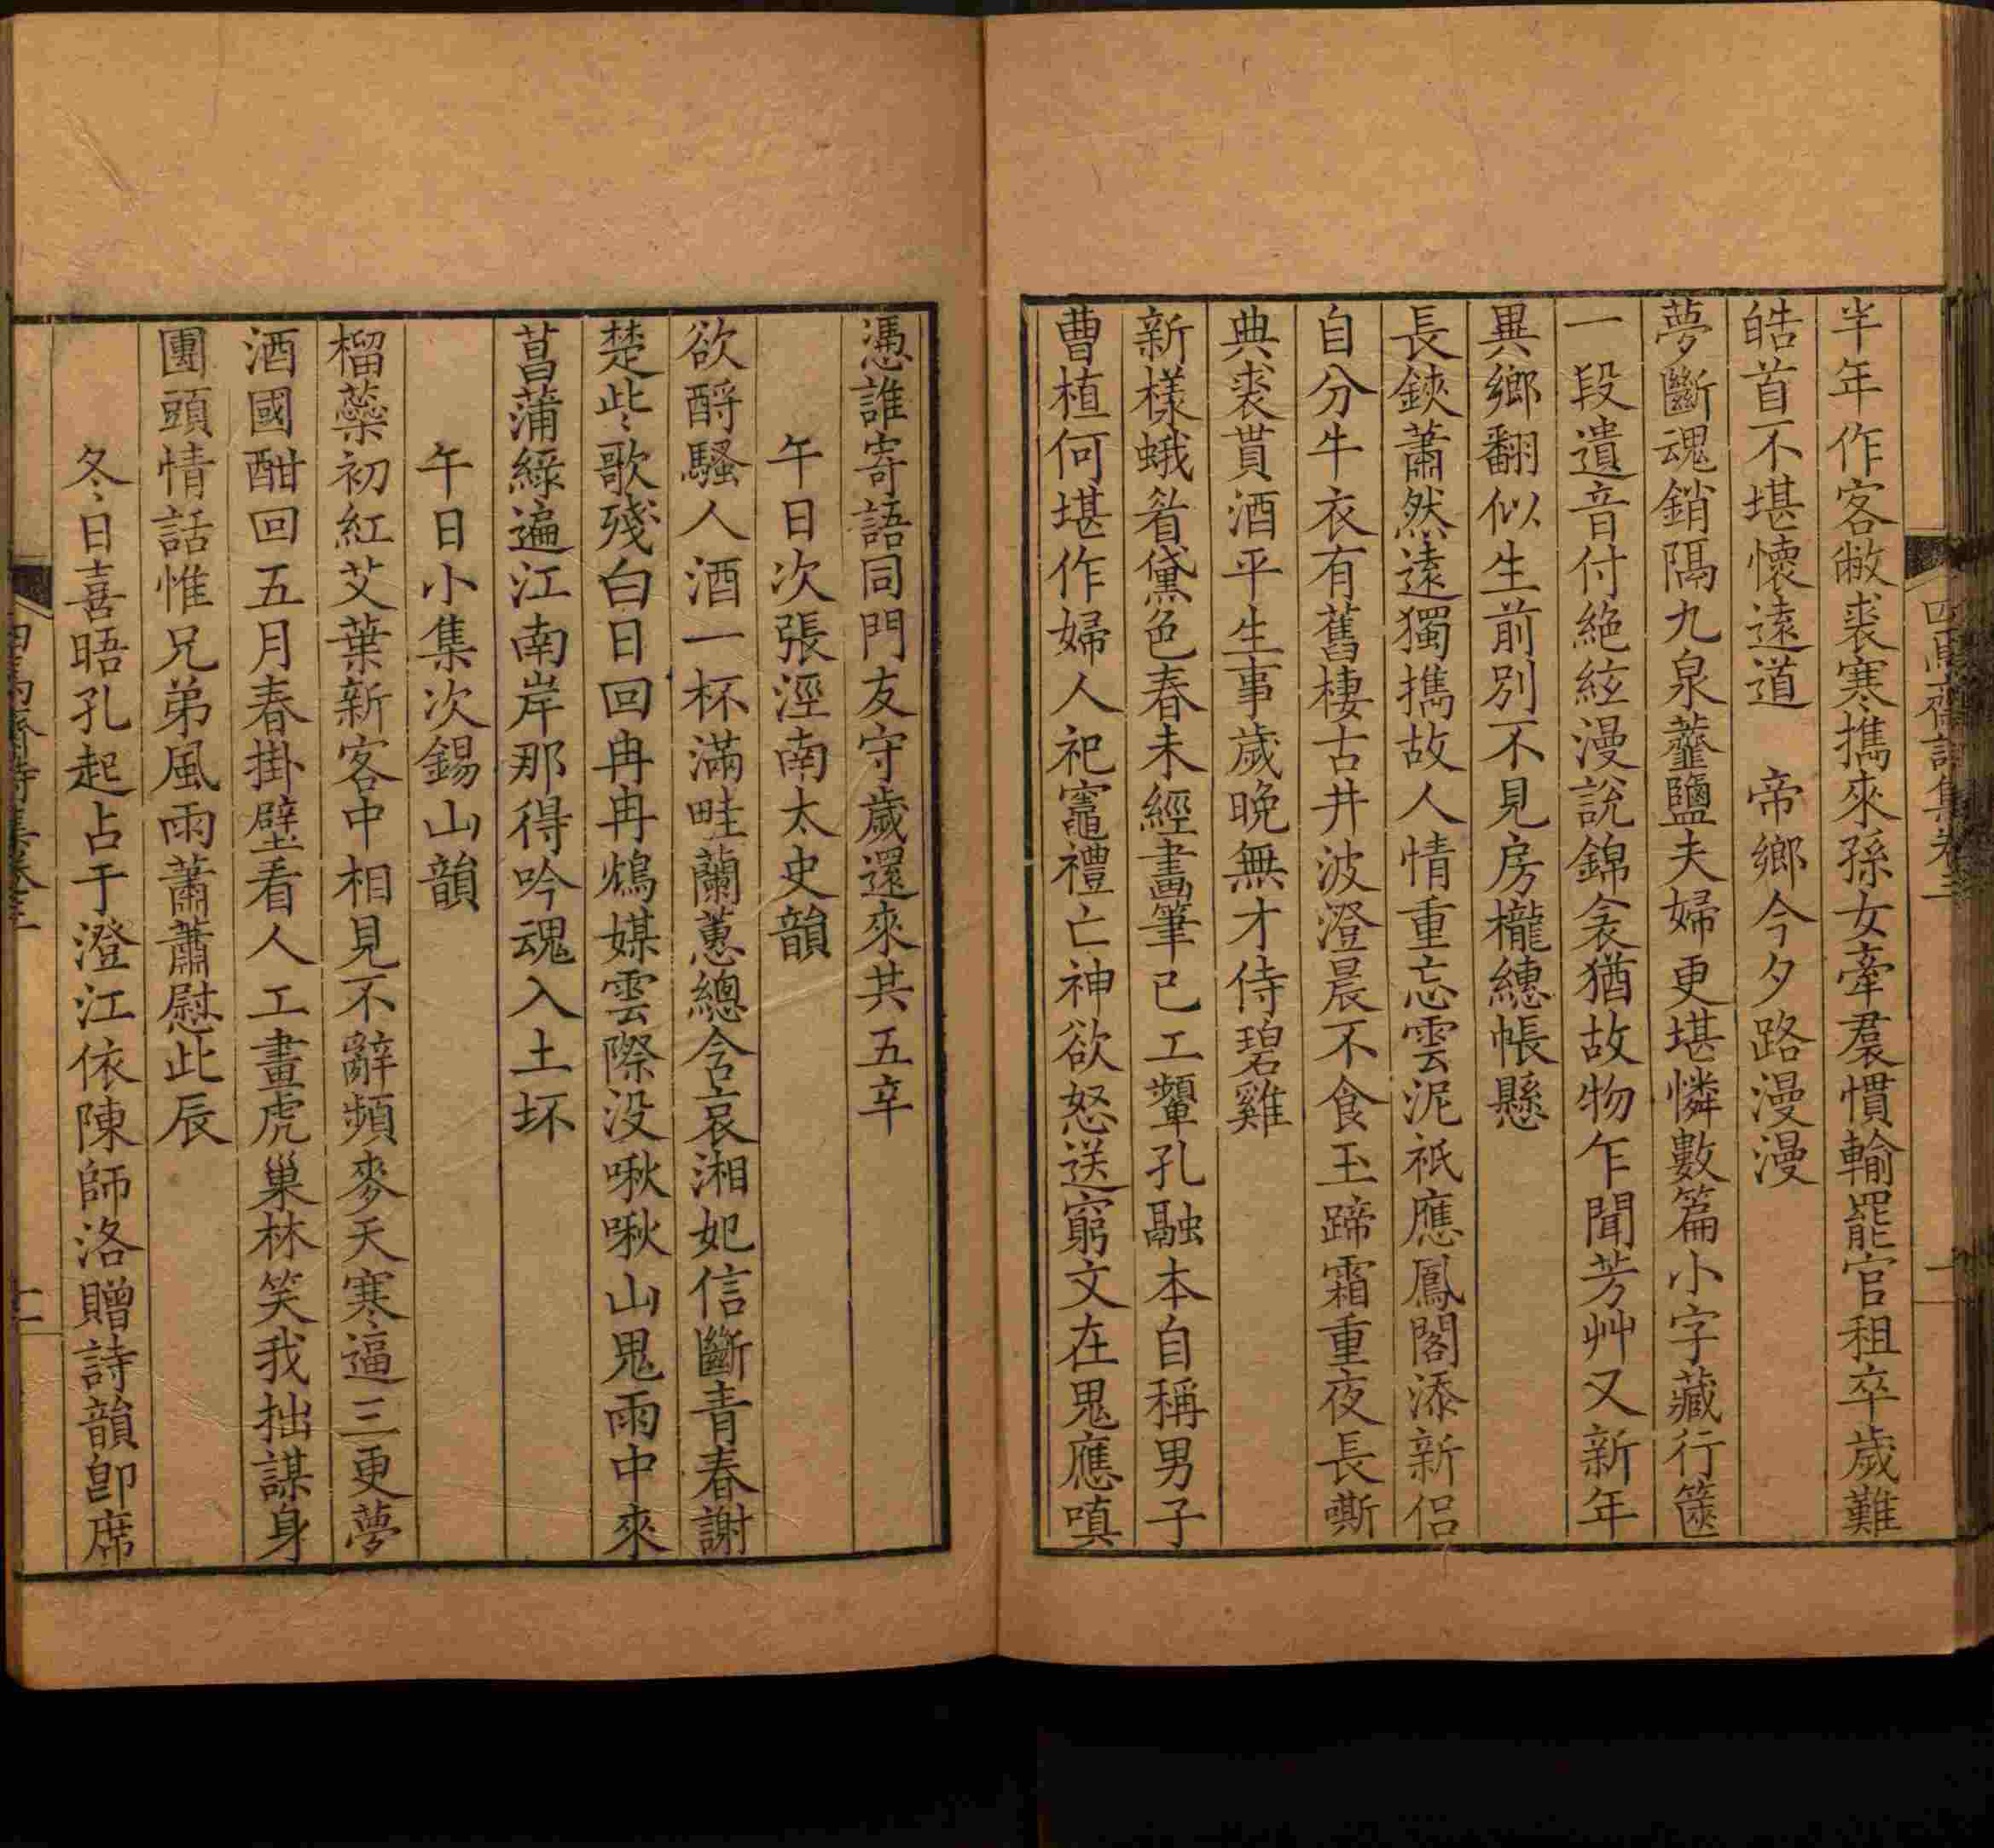 半年作客敝裘寒攜來孫女牽裠慣輸罷官租卒歲難
皓首不堪懷遠道　帝鄉今夕路漫漫
夢斷魂銷隔九泉虀鹽夫婦更堪憐數篇小字藏行篋
一段遺音付絶絃漫說錦衾猶故物乍聞芳艸又新年
異鄉翻似生前別不見房櫳繐帳懸
長鋏蕭然遠獨攜故人情重忘雲泥祇應鳳閣添新侶
自分牛衣有舊棲古井波澄晨不食玉蹄霜重夜長嘶
典裘貰酒平生事歲晚無才侍碧雞
新樣蛾眉黛色春未經畫筆已工顰孔融本自稱男子
曹植何堪作婦人祀竈禮亡神欲怒送窮文在鬼應嗔
憑誰寄語同門友守歲還來共五辛
午日次張涇南太史韻
欲酹騷人酒一杯滿畦蘭蕙總含哀湘妃信斷青春謝
楚些歌殘白日回冉冉鴆媒雲際没啾啾山鬼雨中來
菖蒲綠遍江南岸那得吟魂入土坏
午日小集次錫山韻
榴蘂初紅艾葉新客中相見不辭頻麥天寒逼三更夢
酒國酣回五月春掛壁看人工畫虎巢林笑我拙謀身
團頭情話惟兄弟風雨蕭蕭慰此辰
冬日喜晤孔起占于澄江依陳師洛贈詩韻卽席